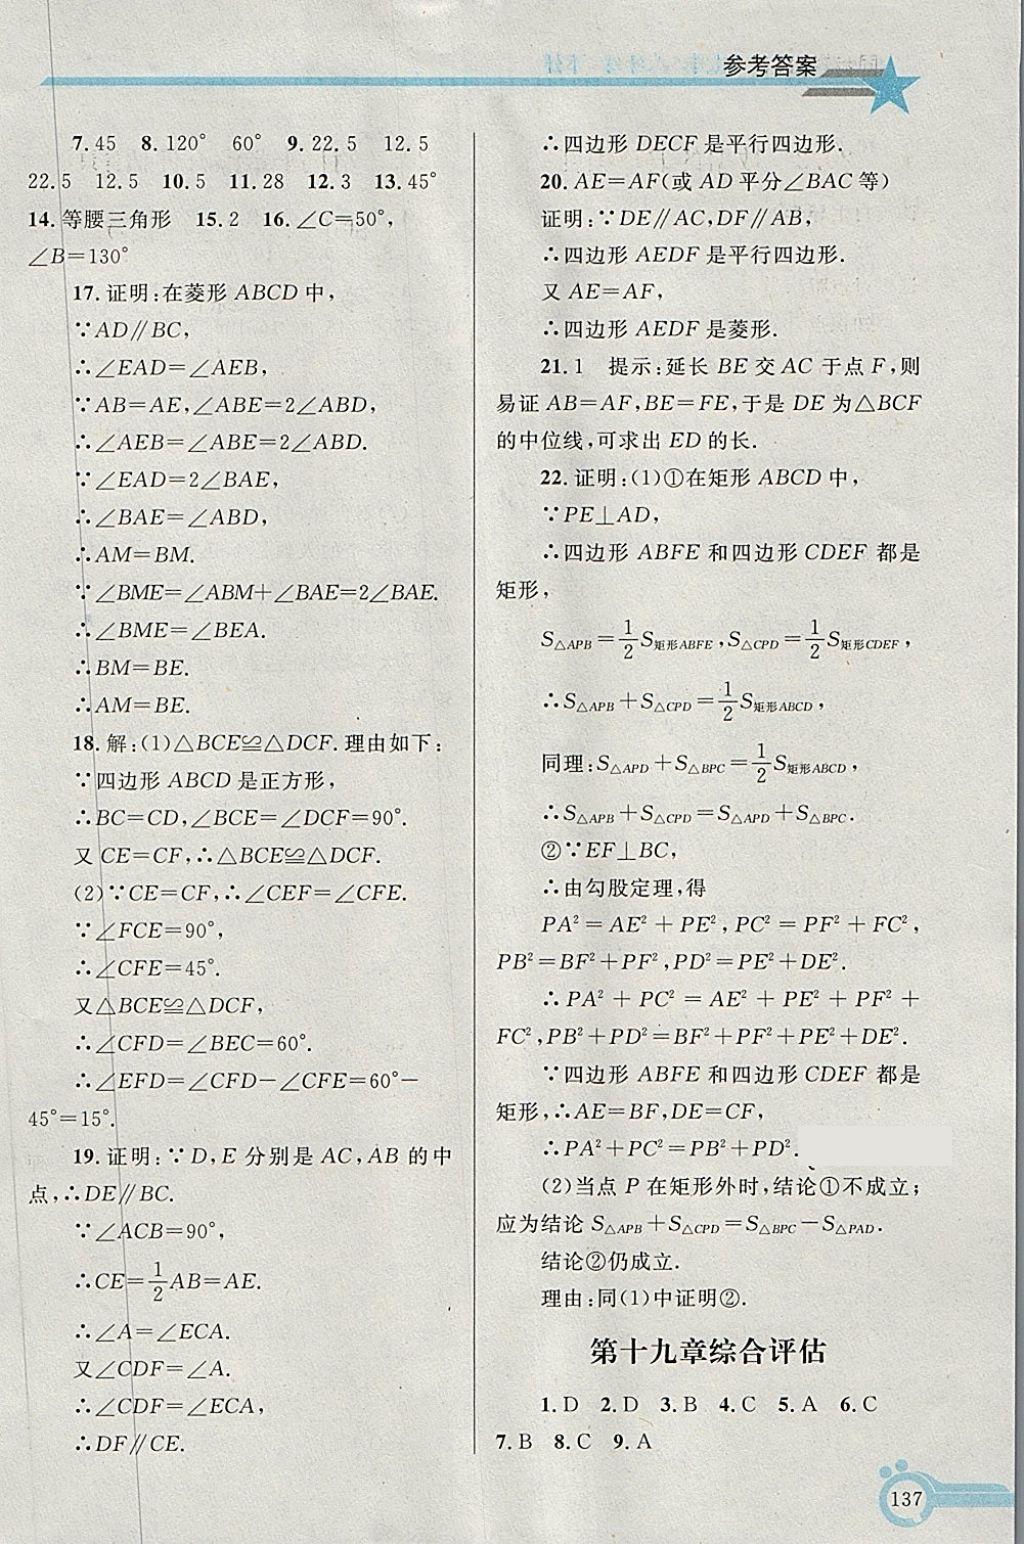 参考答案
7.45　8.120°　60°　9.22.5　12.5
22.5　12.5　10.5　11.28　12.3　13.45°
14.等腰三角形　15.2　16.∠C=50°,
∠B=130°
17.证明:在菱形 ABCD 中,
∵AD∥BC,
∴∠EAD=∠AEB,
∵AB=AE,∠ABE=2∠ABD,
∴∠AEB=∠ABE=2∠ABD.
∵∠EAD=2∠BAE,
∴∠BAE=∠ABD,
∴AM=BM.
∵∠BME=∠ABM+∠BAE=2∠BAE.
∴∠BME=∠BEA.
∴BM=BE.
∴AM=BE.
18.解:(1)△BCE≌△DCF.理由如下:
∵四边形 ABCD 是正方形,
∴BC=CD,∠BCE=∠DCF=90°.
又 CE=CF,∴△BCE≌△DCF.
(2)∵CE=CF,∴∠CEF=∠CFE.
∵∠FCE=90°,
∴∠CFE=45°.
又△BCE≌△DCF,
∴∠CFD=∠BEC=60°.
∴∠EFD=∠CFD−∠CFE=60°−
45°=15°.
19.证明:∵D,E 分别是 AC,AB 的中
点,∴DE∥BC.
∵∠ACB=90°,
∴CE=1/2AB=AE.
∴∠A=∠ECA.
又∠CDF=∠A.
∴∠CDF=∠ECA,
∴DF∥CE.
∴四边形 DECF 是平行四边形.
20.AE=AF(或 AD 平分∠BAC 等)
证明:∵DE∥AC,DF∥AB,
∴四边形 AEDF 是平行四边形.
又 AE=AF,
∴四边形 AEDF 是菱形.
21.1　提示:延长 BE 交 AC 于点 F,则
易证 AB=AF,BE=FE,于是 DE 为△BCF
的中位线,可求出 ED 的长.
22.证明:(1)①在矩形 ABCD 中,
∵PE⊥AD,
∴四边形 ABFE 和四边形 CDEF 都是
矩形,
S△APB=1/2S矩形ABFE,S△CPD=1/2S矩形CDEF,
∴S△APB+S△CPD=1/2S矩形ABCD,
同理:S△APD+S△BPC=1/2S矩形ABCD,
∴S△APB+S△CPD=S△APD+S△BPC.
②∵EF⊥BC,
∴由勾股定理,得
PA²=AE²+PE²,PC²=PF²+FC²,
PB²=BF²+PF²,PD²=PE²+DE².
∴PA²+PC²=AE²+PE²+PF²+
FC²,PB²+PD²=BF²+PF²+PE²+DE².
∵四边形 ABFE 和四边形 CDEF 都是
矩形,∴AE=BF,DE=CF,
∴PA²+PC²=PB²+PD².
(2)当点 P 在矩形外时,结论①不成立;
应为结论 S△APB+S△CPD=S△BPC−S△PAD.
结论②仍成立.
理由:同(1)中证明②.
第十九章综合评估
1.D　2.D　3.B　4.C　5.A　6.C
7.B　8.C　9.A
137